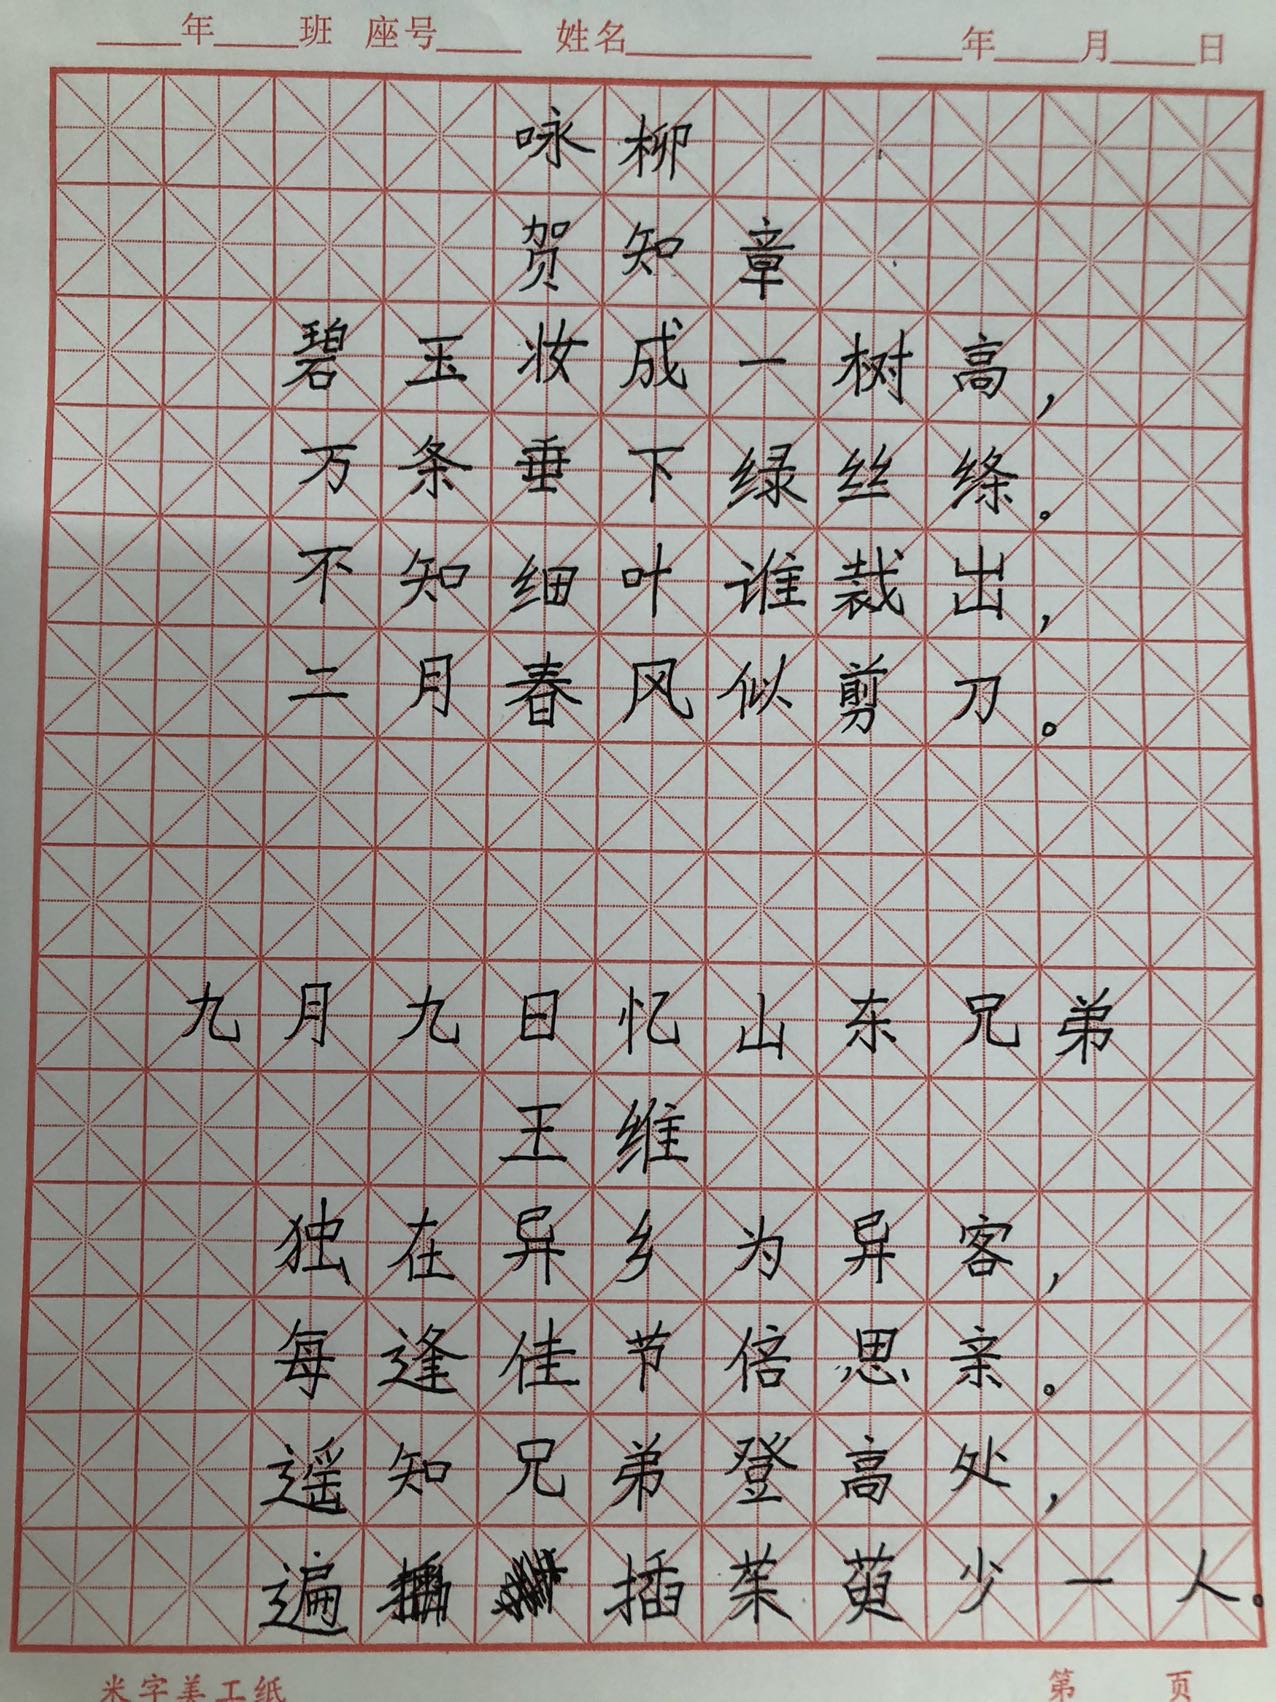 ____年____班 座号____ 姓名________ ____年____月____日
咏柳
贺知章
碧玉妆成一树高，
万条垂下绿丝绦。
不知细叶谁裁出，
二月春风似剪刀。
九月九日忆山东兄弟
王维
独在异乡为异客，
每逢佳节倍思亲。
遥知兄弟登高处，
遍插茱萸少一人。
米字美工纸 第 页